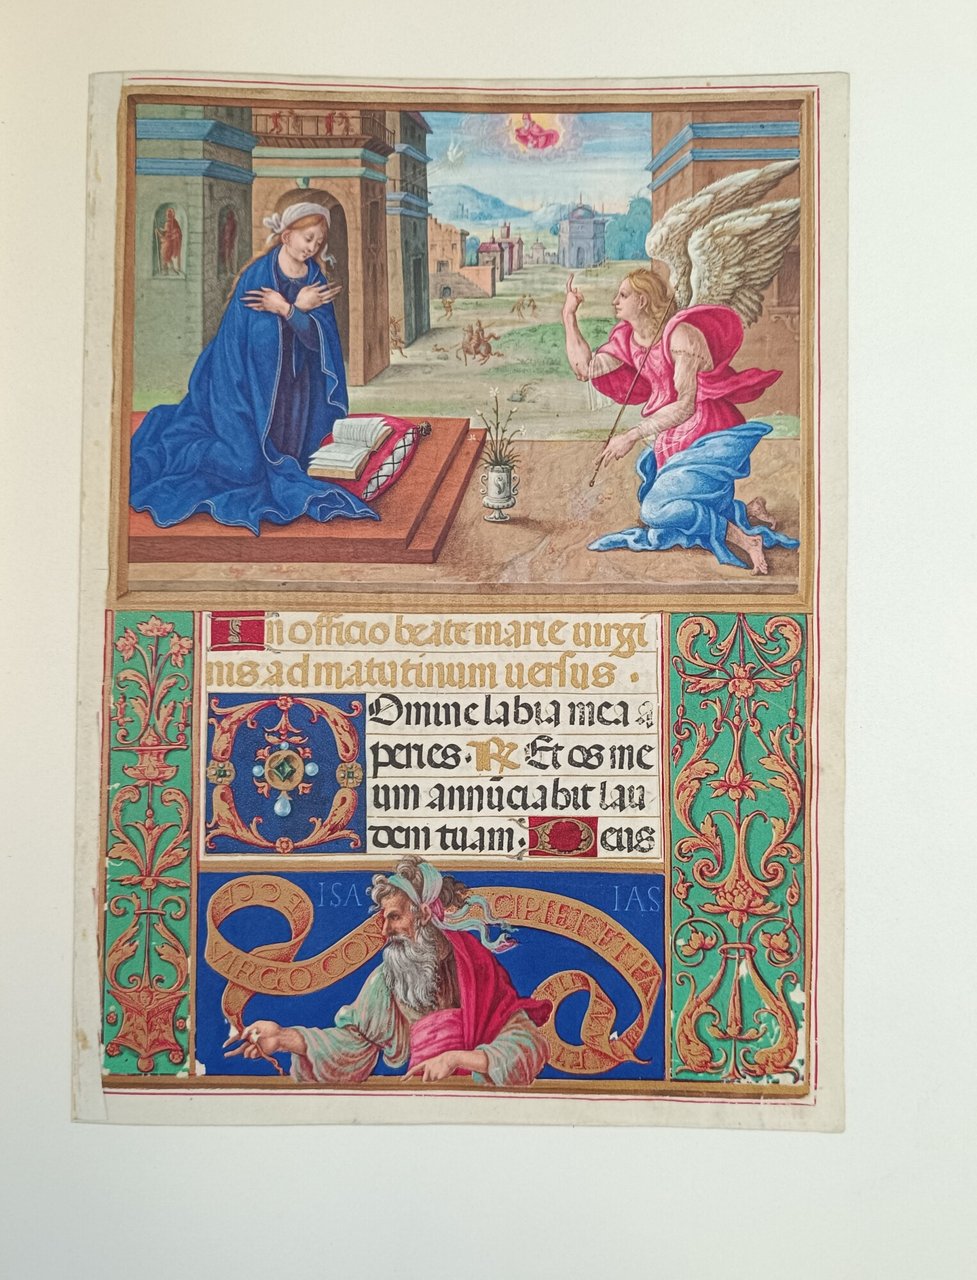 In officio beate marie uirgi
nis ad matutinum uersus.
Domine labia mea a
peries. R Et os me
um annūciabit lau
dem tuam. Deus
ISA IAS
ECCE
VIRGO CON
CIPIET ET PA